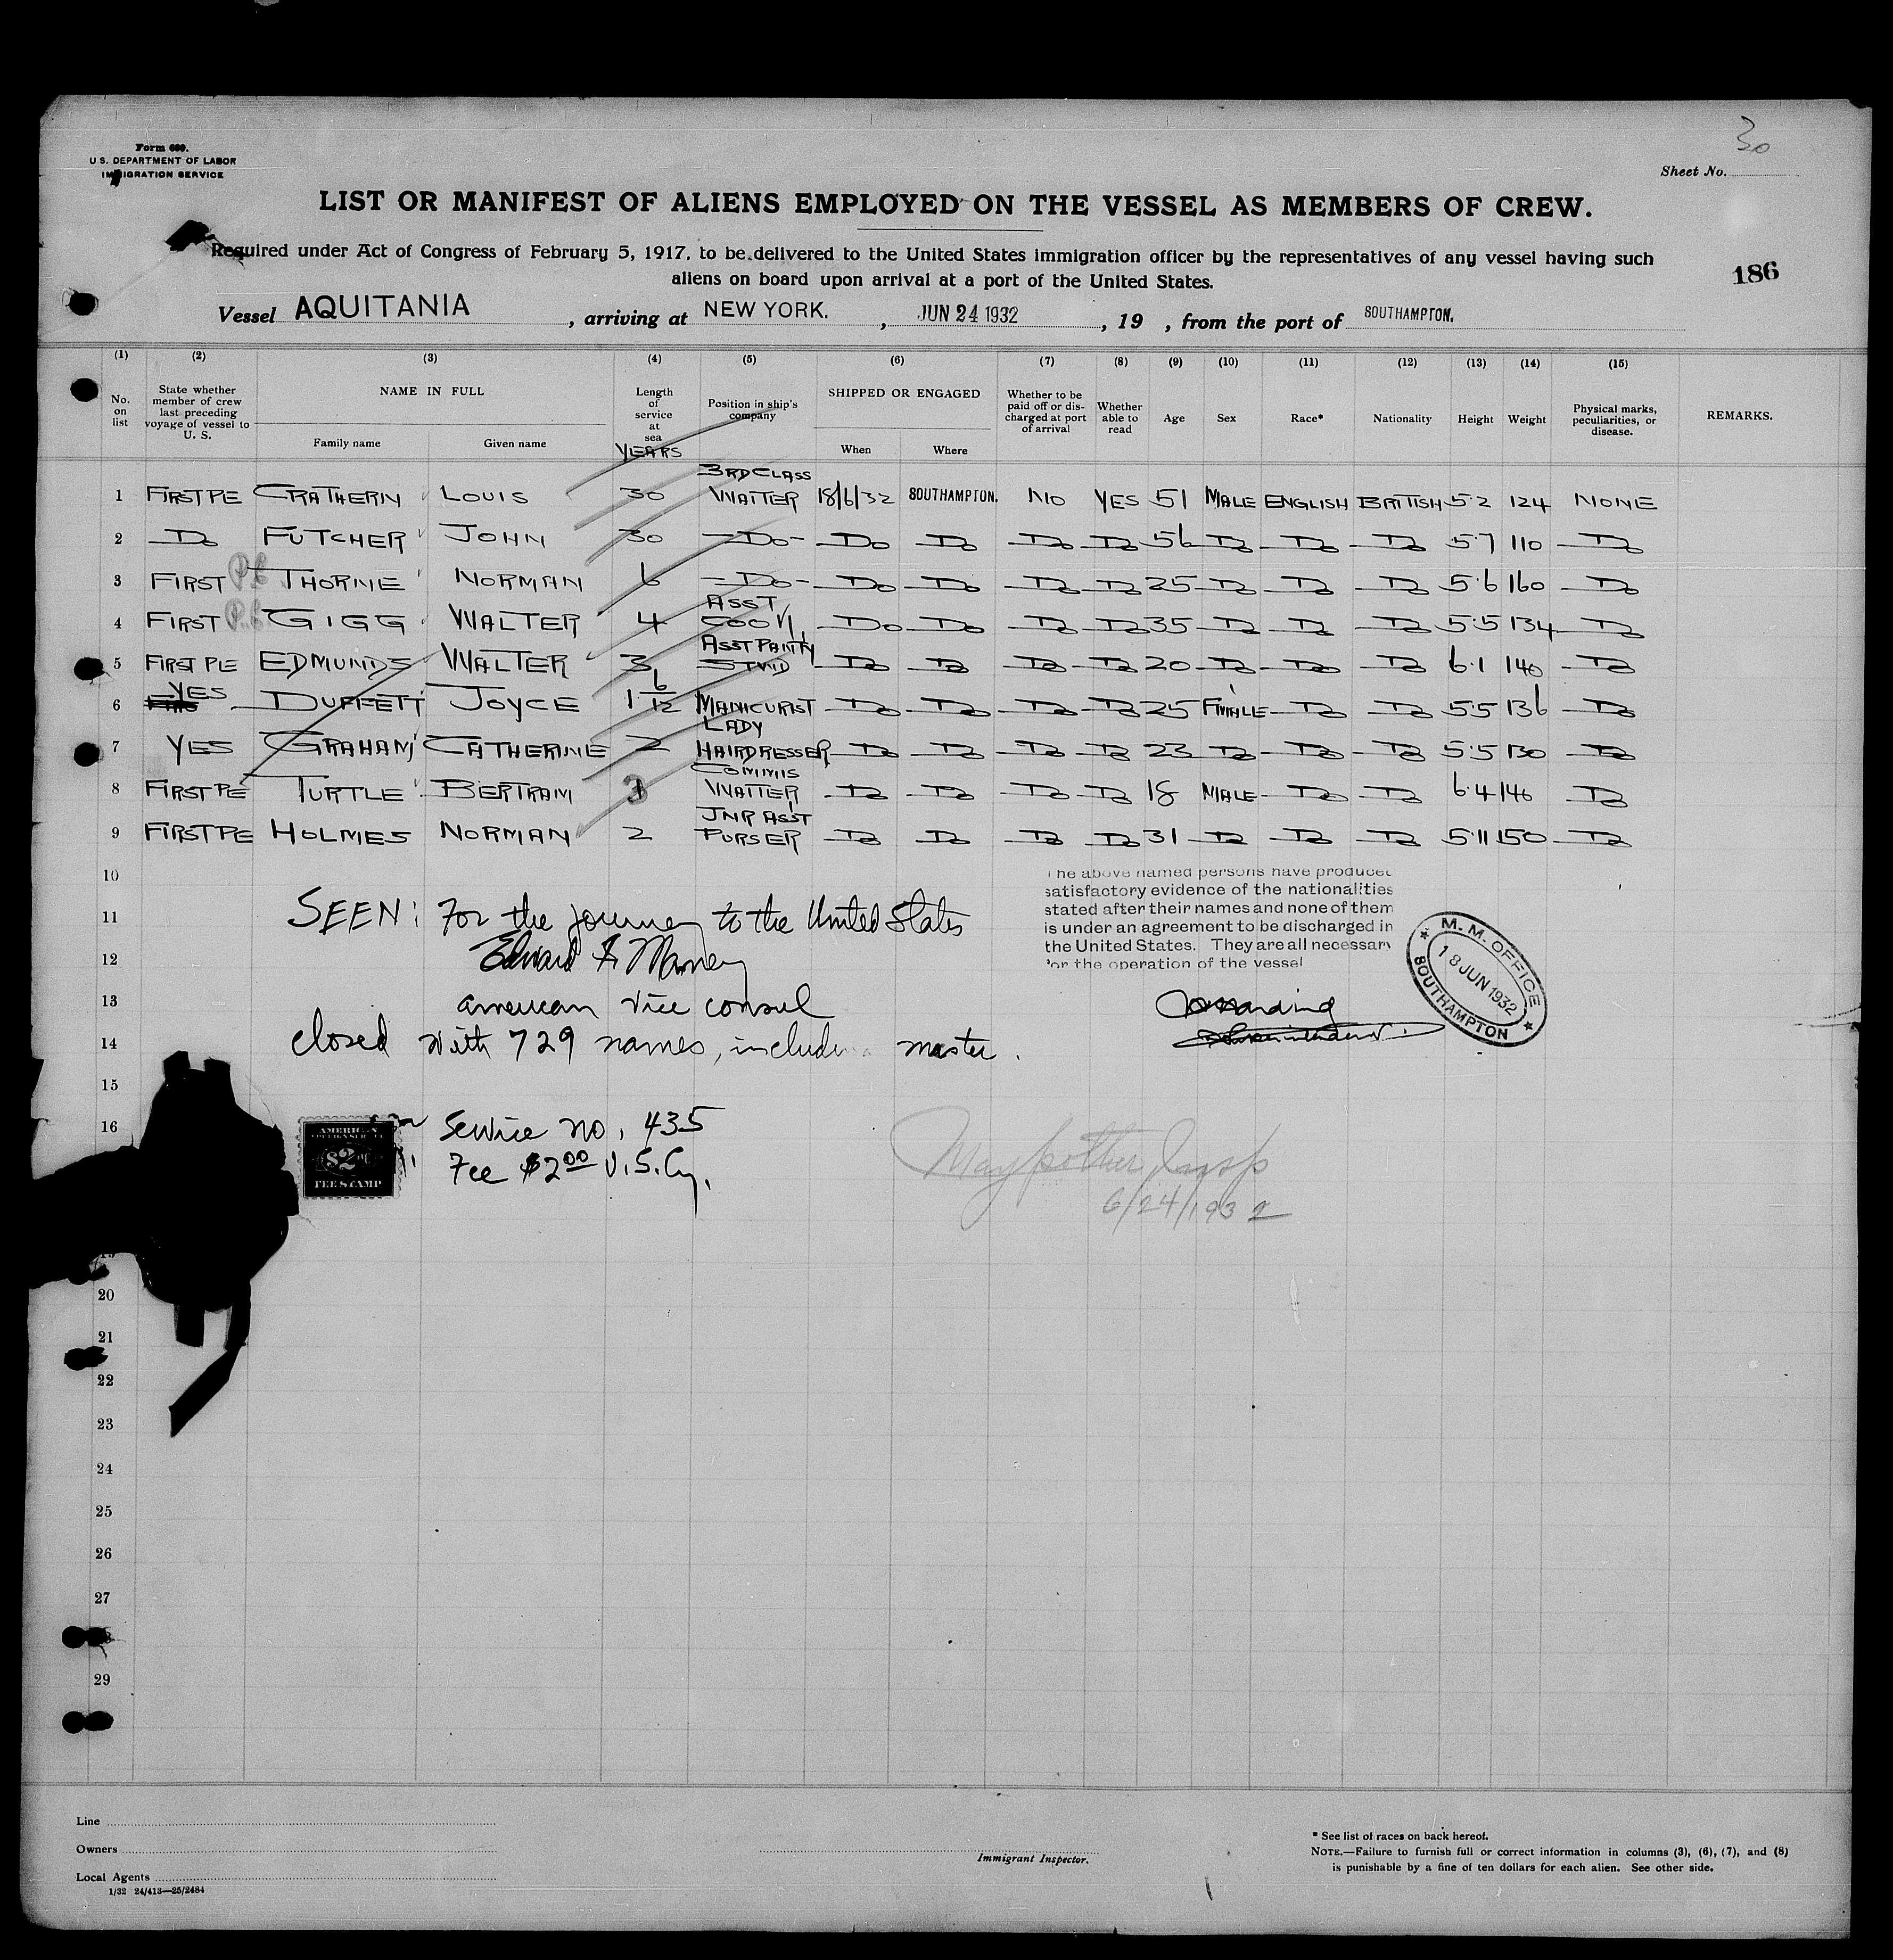 Form 680.
U. S. DEPARTMENT OF LABOR
IMMIGRATION SERVICE
30
Sheet No.
LIST OR MANIFEST OF ALIENS EMPLOYED ON THE VESSEL AS MEMBERS OF CREW.
Required under Act of Congress of February 5, 1917, to be delivered to the United States immigration officer by the representatives of any vessel having such
aliens on board upon arrival at a port of the United States.
186
Vessel AQUITANIA , arriving at NEW YORK. , JUN 24 1932 , 19 , from the port of SOUTHAMPTON.
(1) (2) (3) (4) (5) (6) (7) (8) (9) (10) (11) (12) (13) (14) (15)
No. on list State whether member of crew last preceding voyage of vessel to U. S. NAME IN FULL Family name Given name Length of service at sea YEARS Position in ship's company SHIPPED OR ENGAGED When Where Whether to be paid off or discharged at port of arrival Whether able to read Age Sex Race* Nationality Height Weight Physical marks, peculiarities, or disease. REMARKS.
1 FIRST PE GRATHERN LOUIS 30 3RD CLASS WAITER 18/6/32 SOUTHAMPTON. NO YES 51 MALE ENGLISH BRITISH 5·2 124 NONE
2 Do FUTCHER JOHN 30 Do Do Do Do Do 56 Do Do Do 5·7 110 Do
3 FIRST THORNE NORMAN 6 Do Do Do Do Do 25 Do Do Do 5·6 160 Do
4 FIRST GIGG WALTER 4 ASST COOK Do Do Do Do 35 Do Do Do 5·5 134 Do
5 FIRST PE EDMUNDS WALTER 3 ASST PANTRY STWD Do Do Do Do 20 Do Do Do 6·1 140 Do
6 YES DUFFETT JOYCE 1 6/12 MANICURIST Do Do Do Do 25 FMALE Do Do 5·5 136 Do
7 YES GRAHAM CATHERINE 2 LADY HAIRDRESSER Do Do Do Do 23 Do Do Do 5·5 130 Do
8 FIRST PE TURTLE BERTRAM COMMIS WAITER Do Do Do Do 18 MALE Do Do 6·4 146 Do
9 FIRST PE HOLMES NORMAN 2 JNR ASST PURSER Do Do Do Do 31 Do Do Do 5·11 150 Do
10
The above named persons have produced
satisfactory evidence of the nationalities
stated after their names and none of them
is under an agreement to be discharged in
the United States. They are all necessary
for the operation of the vessel
11 SEEN: For the journey to the United States
12 Edward
13 American Vice Consul
14 closed with 729 names, including master.
Superintendent
M. M. OFFICE
18 JUN 1932
SOUTHAMPTON
15
16 Service no. 435
Fee $2.00 U.S.Cy.
AMERICAN
$2
FEE STAMP
Insp
6/24/1932
19
20
21
22
23
24
25
26
27
29
Line
Owners
Local Agents
1/32 24/413—25/2484
Immigrant Inspector.
* See list of races on back hereof.
NOTE.—Failure to furnish full or correct information in columns (3), (6), (7), and (8)
is punishable by a fine of ten dollars for each alien. See other side.